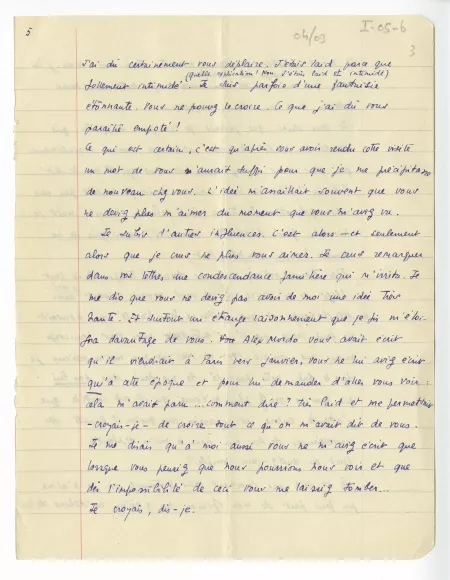 5
04/03
I-05-6
3
J'ai dû certainement vous déplaire. J'étais laid parce que
(quelle explication! Non j'étais laid et intimidé)
follement intimidé. Je suis parfois d'une fantaisie
étonnante. Vous ne pouvez le croire. Ce que j'ai dû vous
paraître empoté!
Ce qui est certain, c'est qu'après vous avoir rendu cette visite
un mot de vous m'aurait suffi pour que je me précipitasse
de nouveau chez vous. L'idée m'assaillait souvent que vous
ne deviez plus m'aimer du moment que vous m'aviez vu.
Je subis d'autres influences. C'est alors - et seulement
alors que je crus ne plus vous aimer. Je crus remarquer
dans vos lettres une condescendance familière qui m'irrita. Je
me dis que vous ne deviez pas avoir de moi une idée très
haute. Et surtout un étrange raisonnement que je fis m'éloi-
gna davantage de vous: Alex Mordo vous avait écrit
qu'il viendrait à Paris vers Janvier, vous ne lui aviez écrit
qu'à cette époque et pour lui demander d'aller vous voir:
cela m'avait paru... comment dire? très laid et me permettait
- croyais-je - de croire tout ce qu'on m'avait dit de vous.
Je me disais qu'à moi aussi vous ne m'aviez écrit que
lorsque vous pensiez que nous pourrions nous voir et que
dès l'impossibilité de ceci vous me laissiez tomber...
Je croyais, dis-je.